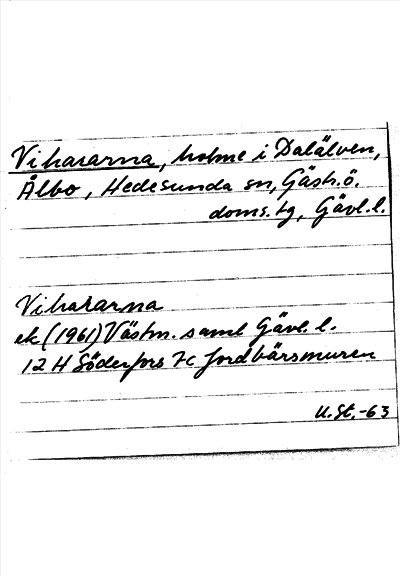 Vihararna, holme i Dalälven,
Ålbo, Hedesunda sn, Gästr.ö.
doms.tg, Gävl.l.
Vihararna
ek (1961) Västm. samt Gävl. l.
12 H Söderfors 7c Jordbärsmuren
U.St.-63